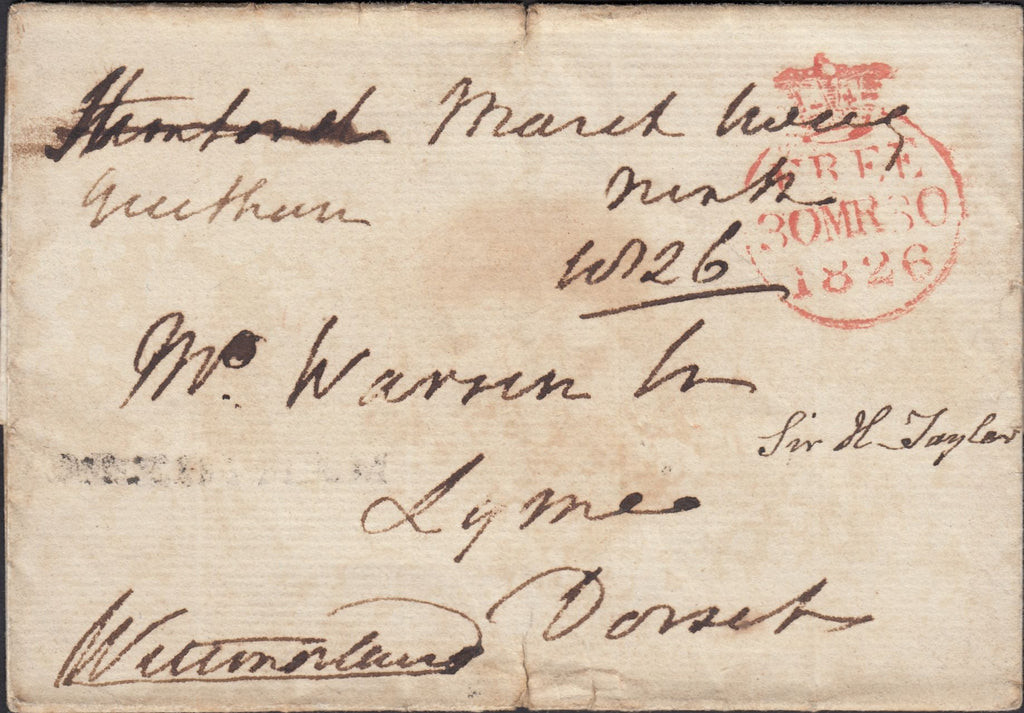 March twenty
Grantham ninth
1826
FREE
30MR30
1826
Mr. Warren Sr
Sir H. Taylor
Lyme
Dorset
Westmorland